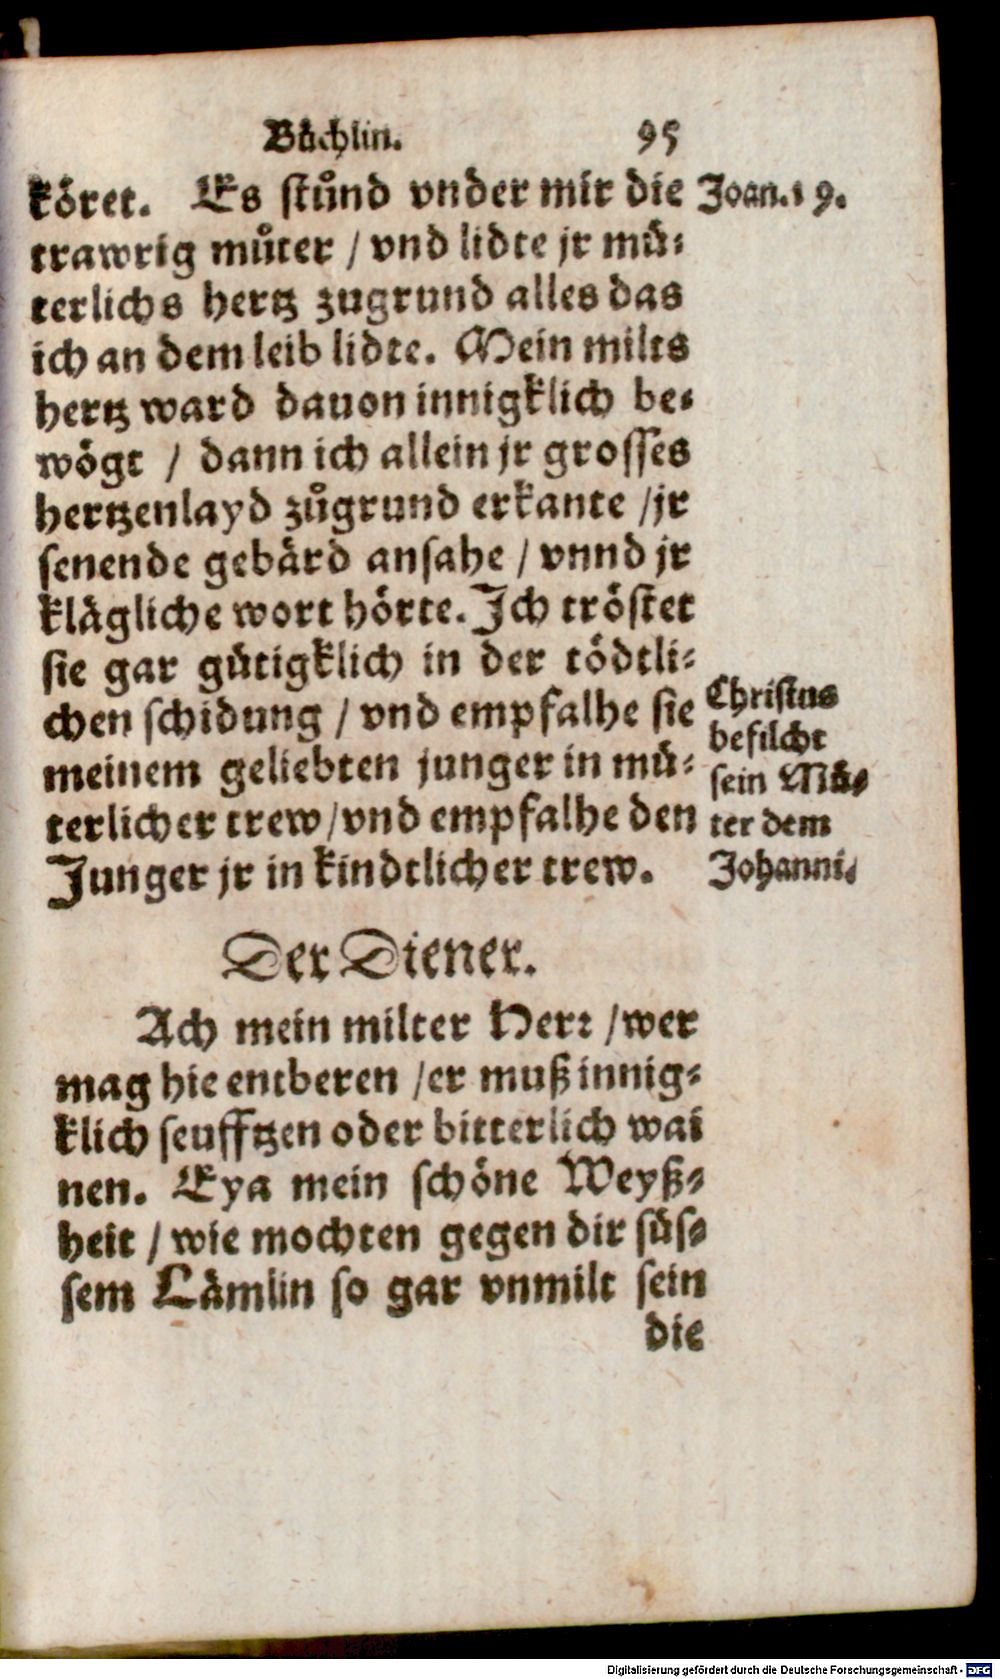 Bůchlin. 95
köret. Es stůnd vnder mir die
Joan. 19.
trawrig můter / vnd lidte jr mü-
terlichs hertz zugrund alles das
ich an dem leib lidte. Mein milts
hertz ward dauon innigklich be-
wögt / dann ich allein jr grosses
hertzenlayd zůgrund erkante / jr
senende gebärd ansahe / vnnd jr
klägliche wort hörte. Ich tröstet
sie gar gütigklich in der tödtli-
chen schidung / vnd empfalhe sie
meinem geliebten junger in mü-
terlicher trew / vnd empfalhe den
Junger jr in kindtlicher trew.
Christus
befilcht
sein Mů-
ter dem
Johanni.
Der Diener.
Ach mein milter Herr / wer
mag hie entberen / er muß innig-
klich seufftzen oder bitterlich wai
nen. Eya mein schöne Weyß-
heit / wie mochten gegen dir süs-
sem Lämlin so gar vnmilt sein
die
Digitalisierung gefördert durch die Deutsche Forschungsgemeinschaft - DFG